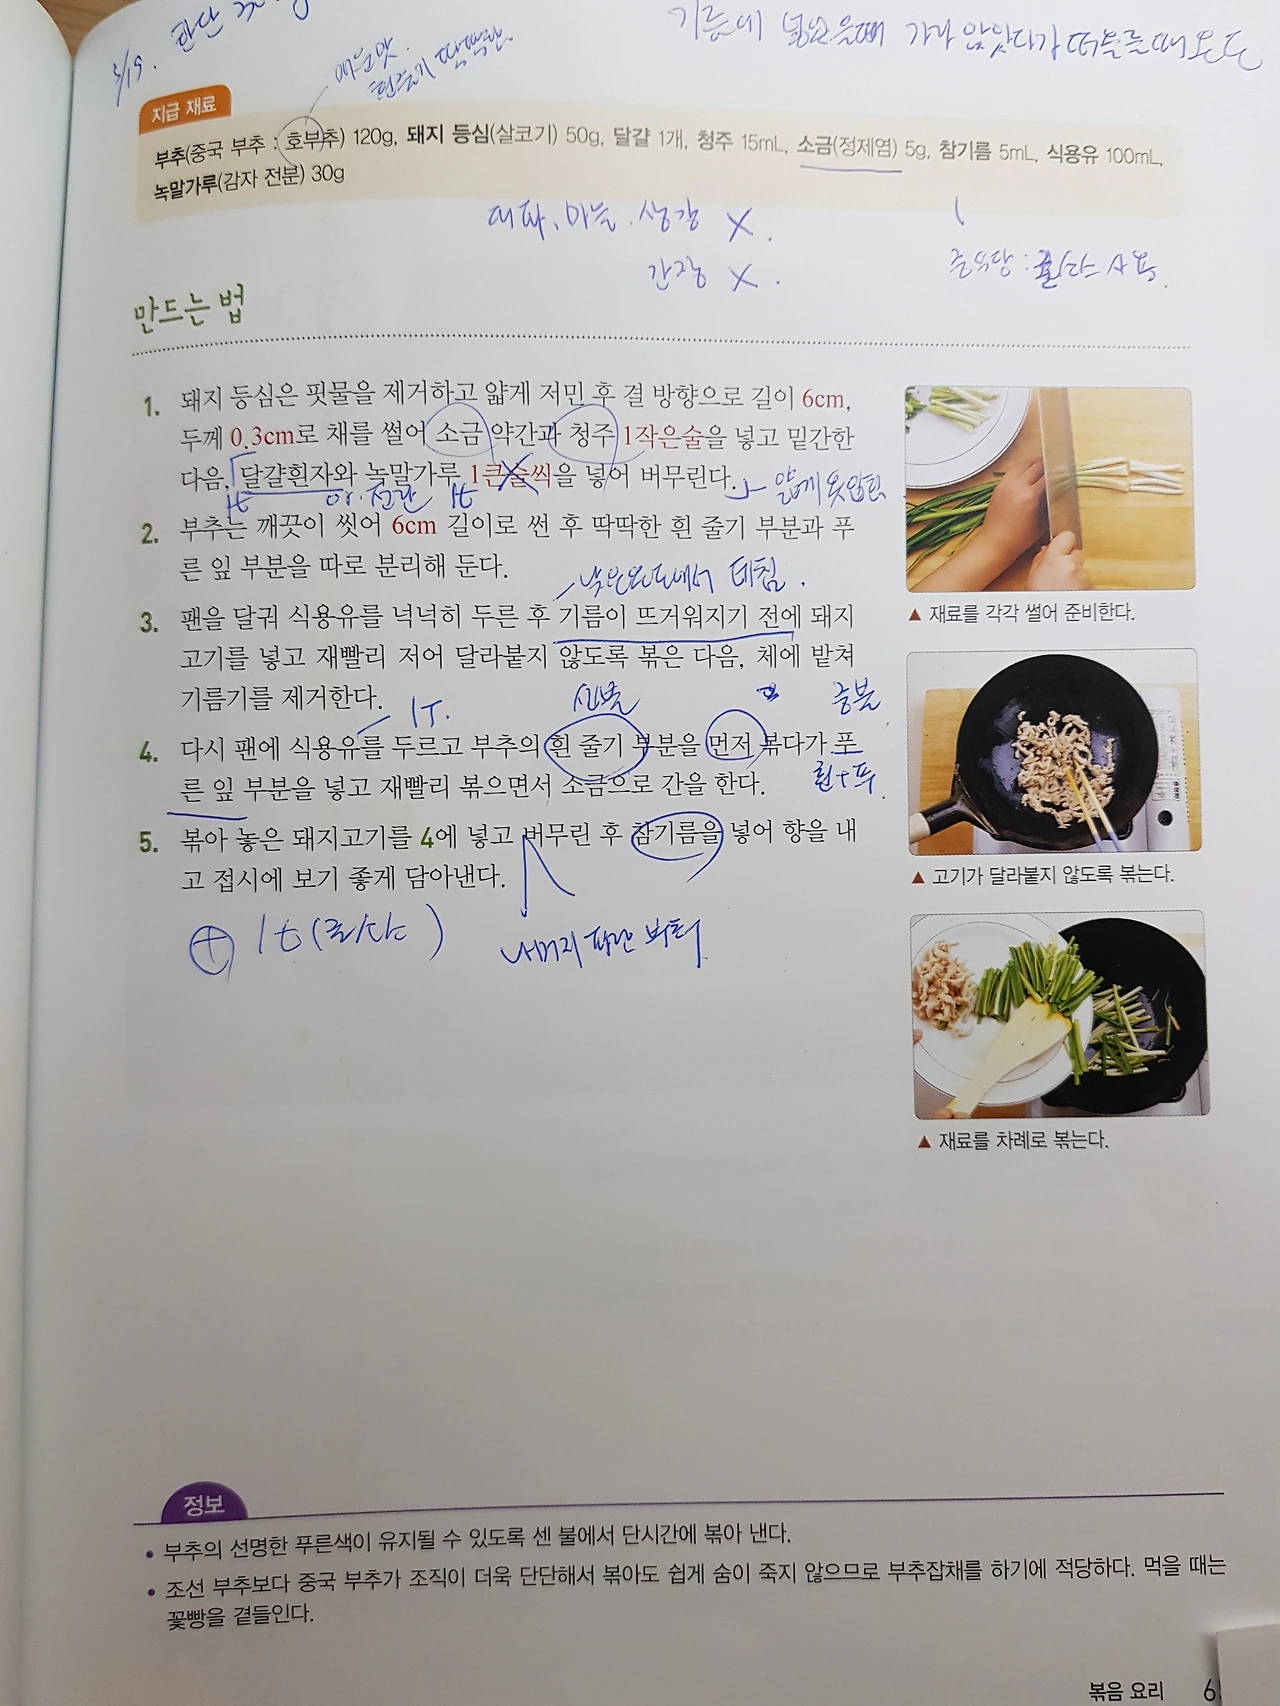 5/19. 판단
기름에 넣었을때 가라 앉았다가 떠오를때 온도
매운맛.
흰줄기 딱딱함.
지급 재료
부추(중국 부추 : 호부추) 120g, 돼지 등심(살코기) 50g, 달걀 1개, 청주 15mL, 소금(정제염) 5g, 참기름 5mL, 식용유 100mL,
녹말가루(감자 전분) 30g
대파, 마늘, 생강 X.
간장 X.
사용.
만드는 법
1. 돼지 등심은 핏물을 제거하고 얇게 저민 후 결 방향으로 길이 6cm,
두께 0.3cm로 채를 썰어 소금 약간과 청주 1작은술을 넣고 밑간한
다음, 달걀흰자와 녹말가루 1큰술씩을 넣어 버무린다.
1t or 전란 1t
얇게 옷입힘
2. 부추는 깨끗이 씻어 6cm 길이로 썬 후 딱딱한 흰 줄기 부분과 푸
른 잎 부분을 따로 분리해 둔다.
낮은온도에서 데침.
3. 팬을 달궈 식용유를 넉넉히 두른 후 기름이 뜨거워지기 전에 돼지
고기를 넣고 재빨리 저어 달라붙지 않도록 볶은 다음, 체에 밭쳐
기름기를 제거한다.
1T. 센불 중불
4. 다시 팬에 식용유를 두르고 부추의 흰 줄기 부분을 먼저 볶다가 푸
른 잎 부분을 넣고 재빨리 볶으면서 소금으로 간을 한다.
흰+푸
5. 볶아 놓은 돼지고기를 4에 넣고 버무린 후 참기름을 넣어 향을 내
고 접시에 보기 좋게 담아낸다.
⊕ 1t
나머지 파란 부터
▲ 재료를 각각 썰어 준비한다.
▲ 고기가 달라붙지 않도록 볶는다.
▲ 재료를 차례로 볶는다.
정보
• 부추의 선명한 푸른색이 유지될 수 있도록 센 불에서 단시간에 볶아 낸다.
• 조선 부추보다 중국 부추가 조직이 더욱 단단해서 볶아도 쉽게 숨이 죽지 않으므로 부추잡채를 하기에 적당하다. 먹을 때는
꽃빵을 곁들인다.
볶음 요리